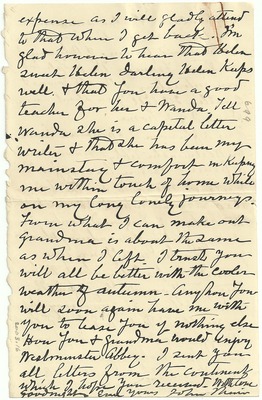 expense as I will gladly attend
to that when I get back. I'm
glad however to hear that Helen
sweet Helen darling Helen keeps
well & that you have a good
teacher for her & Wanda. Tell
Wanda she is a capital letter
writer & that she has been my
mainstay & comfort in keeping
me within touch of home while
on my long lonely journeys.
From what I can make out
Grandma is about the same
as when I left. I trust you
will all be better with the cooler
weather of autumn - Anyhow you
will soon again have me with
you to tease you if nothing else
How you & Grandma would enjoy
Westminster Abbey. I sent you
all letters from the Continent
which I hope you received. With love
goodnight Ever yours John Muir